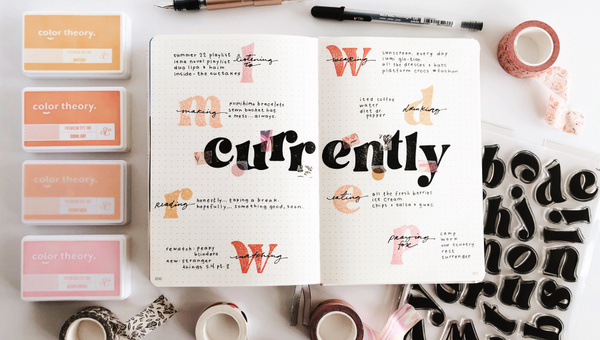 color theory.
color theory.
color theory.
color theory.
summer 22 playlist
lena novel playlist
dua lipa + haim
inside: the outtakes
l
listening to
m
making
punching bracelets
sewn bucket hat
a mess... always.
currently
r
reading
honestly... taking a break.
hopefully... something good, soon.
rewatch: peaky
blinders
new: stranger
things s.4 pt. 2
w
watching
w
wearing
sunscreen. every day
lumi glo-tion
all the dresses + hats
platform crocs #fashion
iced coffee
water
diet dr.
pepper
d
drinking
e
eating
all the fresh berries
ice cream
chips + salsa + guac.
p
praying for
camp
work
our country
rest
surrender